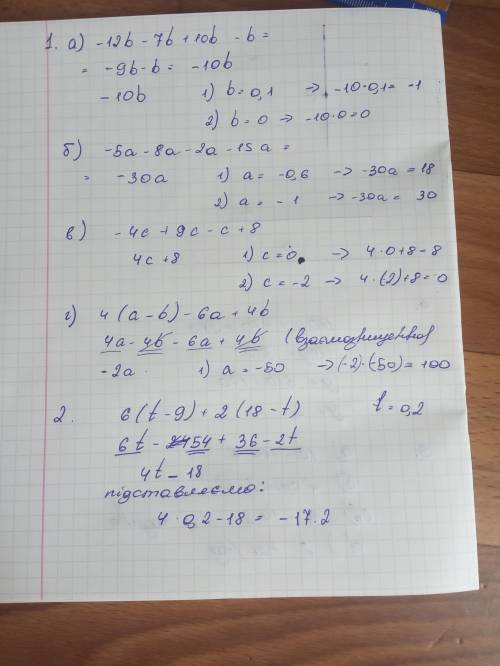 1. а) -12b - 7b + 10b - b =
= -9b - b = -10b
-10b 1) b = 0,1 → -10·0,1 = -1
2) b = 0 → -10·0 = 0
б) -5a - 8a - 2a - 15a =
= -30a 1) a = -0,6 → -30a = 18
2) a = -1 → -30a = 30
в) -4c + 9c - c + 8
4c + 8 1) c = 0 → 4·0 + 8 - 8
2) c = -2 → 4·(2) + 8 = 0
г) 4(a - b) - 6a + 4b
4a - 4b - 6a + 4b (взаємознищенно)
-2a 1) a = -50 → (-2)·(-50) = 100
2. 6(t - 9) + 2(18 - t) t = 0,2
6t - 54 + 36 - 2t
4t - 18
підставляємо:
4·0,2 - 18 = -17.2